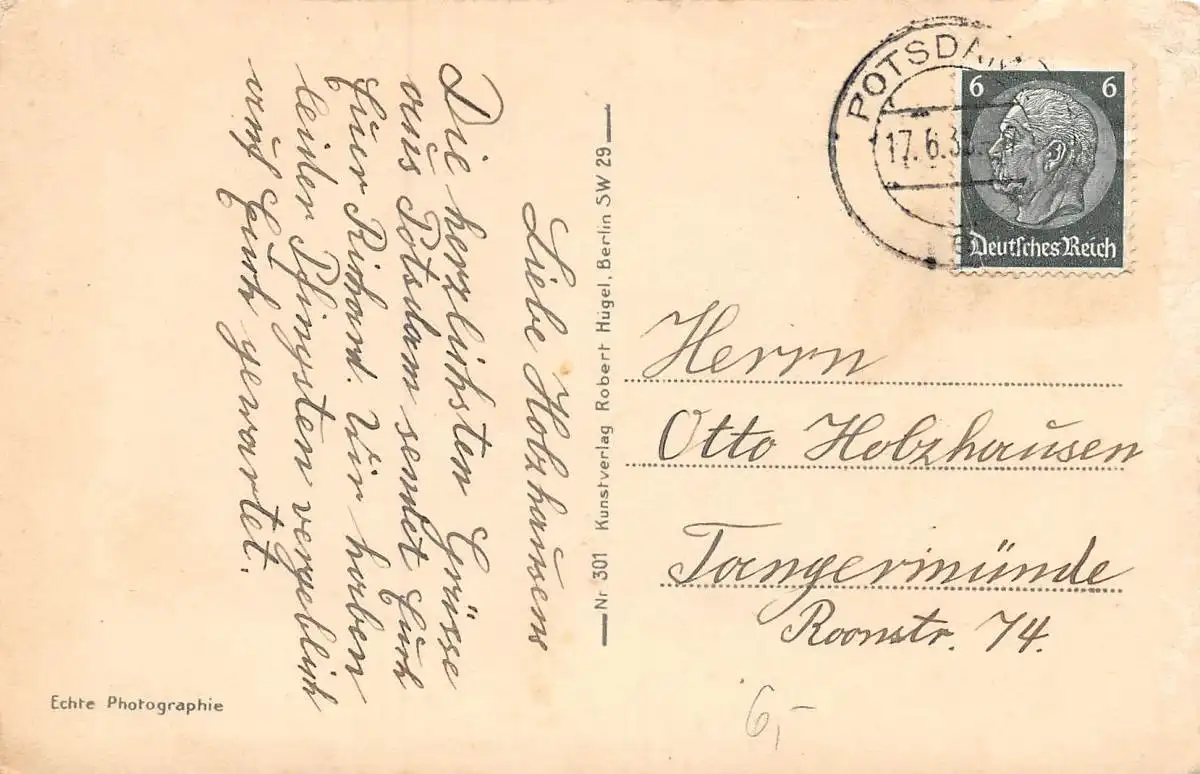 Liebe Holzhausens
Die herzlichsten Grüsse
aus Potsdam sendet Euch
Euer Richard. Wir haben
leider Pfingsten vergeblich
auf Euch gewartet.
Echte Photographie
Nr 301 Kunstverlag Robert Hügel, Berlin SW 29
POTSDAM
17.6.3
6 6
Deutsches Reich
Herrn
Otto Holzhausen
Tangermünde
Roonstr. 74.
6,-